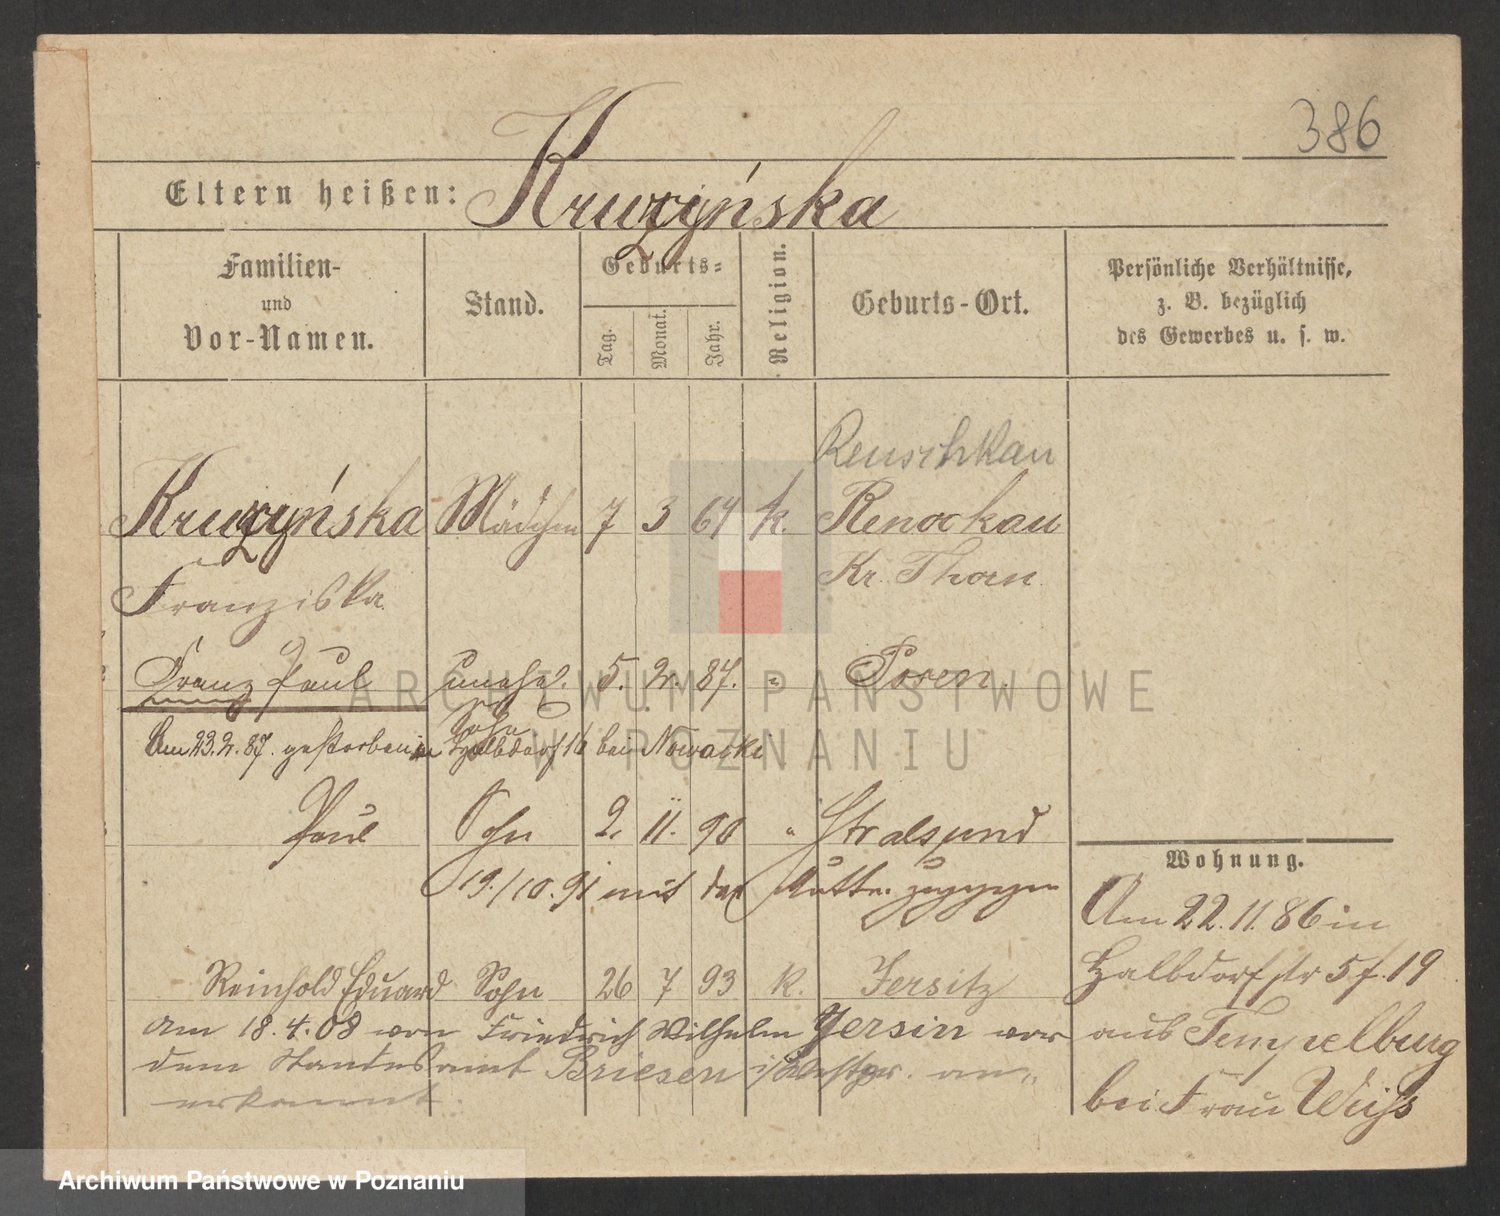 386
Eltern heißen: Kruzyńska
Familien-
und
Vor-Namen.
Stand.
Geburts-
Tag.
Monat.
Jahr.
Religion.
Geburts-Ort.
Persönliche Verhältnisse,
z. B. bezüglich
des Gewerbes u. s. w.
Renschkau
Kruzyńska Mädchen 7 3 64 k. Renockau
Franziska Kr. Thorn
Franz Paul unehel. 5. 2. 87. " Posen
Sohn
Am 23.2.87. gestorben in Halbdorf 16 bei Nowacki
Paul Sohn 2. 11. 90 " Stralsund
19./10.91 mit der Mutter zugezogen
Reinhold Eduard Sohn 26 7 93 k. Jersitz
am 18.4.08 von Friedrich Wilhelm Jersin vor
dem Standesamt Briesen i/Westpr. an-
erkannt.
Wohnung.
Am 22.11.86 in
Halbdorfstr 5 f. 19
aus Tempelburg
bei Frau Weiss
ARCHIWUM PAŃSTWOWE
W POZNANIU
Archiwum Państwowe w Poznaniu